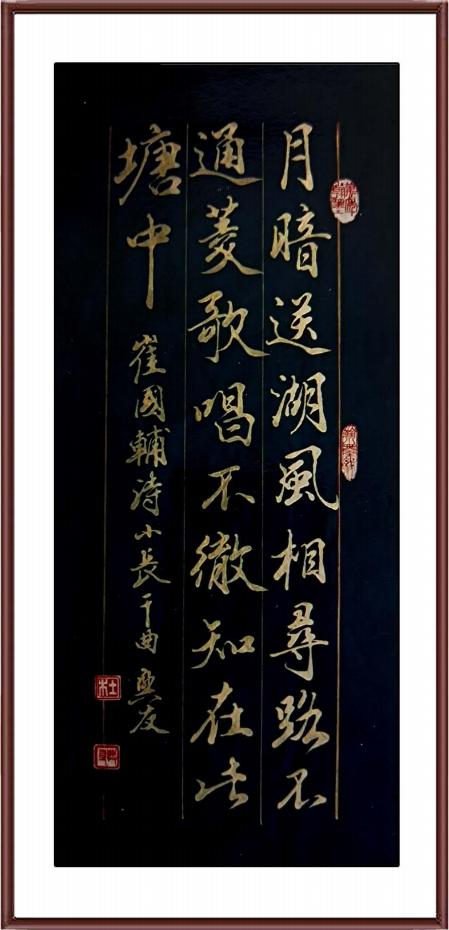 月暗送湖風相尋路不
通菱歌唱不徹知在此
塘中
崔國輔詩小長干曲 興友